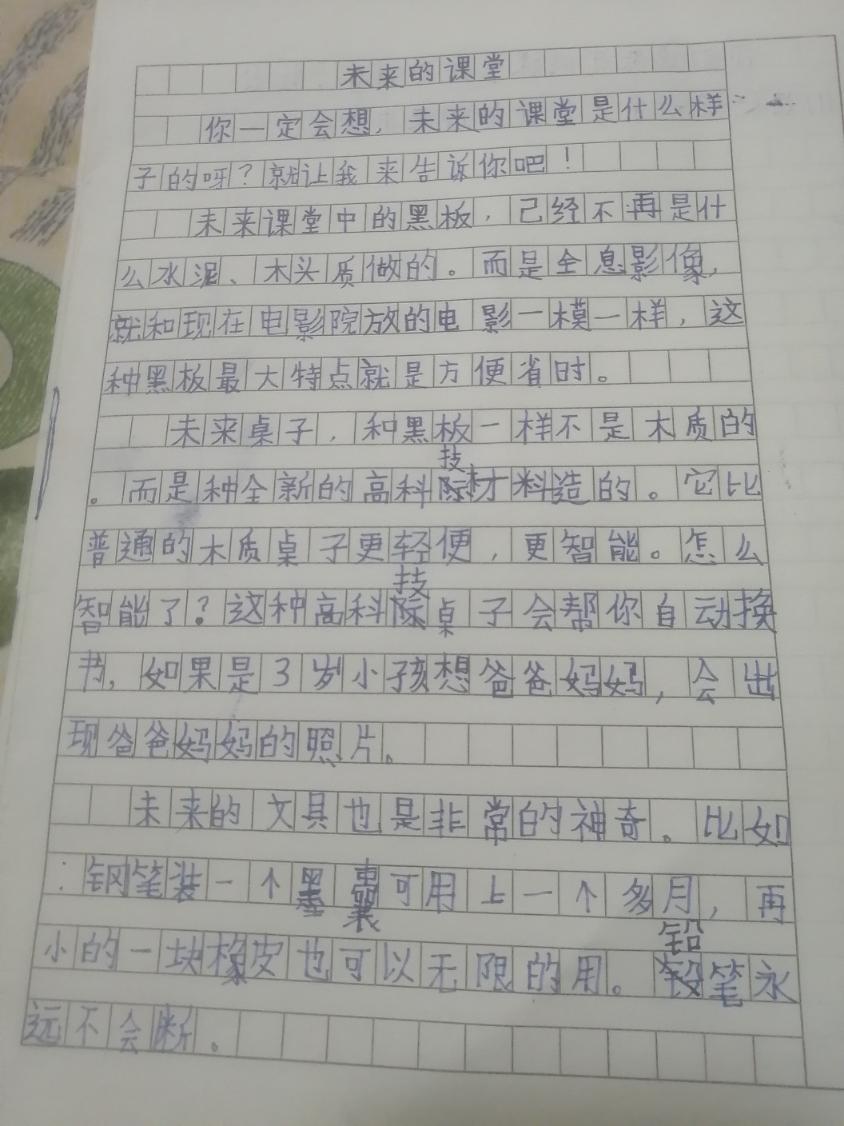 未来的课堂
你一定会想，未来的课堂是什么样
子的呀？就让我来告诉你吧！
未来课堂中的黑板，已经不再是什
么水泥、木头质做的。而是全息影像，
就和现在电影院放的电影一模一样，这
种黑板最大特点就是方便省时。
未来桌子，和黑板一样不是木质的
。而是种全新的高科技材料造的。它比
普通的木质桌子更轻便，更智能。怎么
智能了？这种高科技桌子会帮你自动换
书，如果是3岁小孩想爸爸妈妈，会出
现爸爸妈妈的照片。
未来的文具也是非常的神奇。比如
：钢笔装一个墨囊可用上一个多月，再
小的一块橡皮也可以无限的用。铅笔永
远不会断。